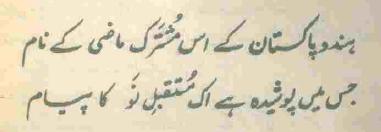 ہندوپاکستان کے اس مُشترَک ماضی کے نام
جس میں پوشیدہ ہے اک مُستقبلِ نَو کا پیام